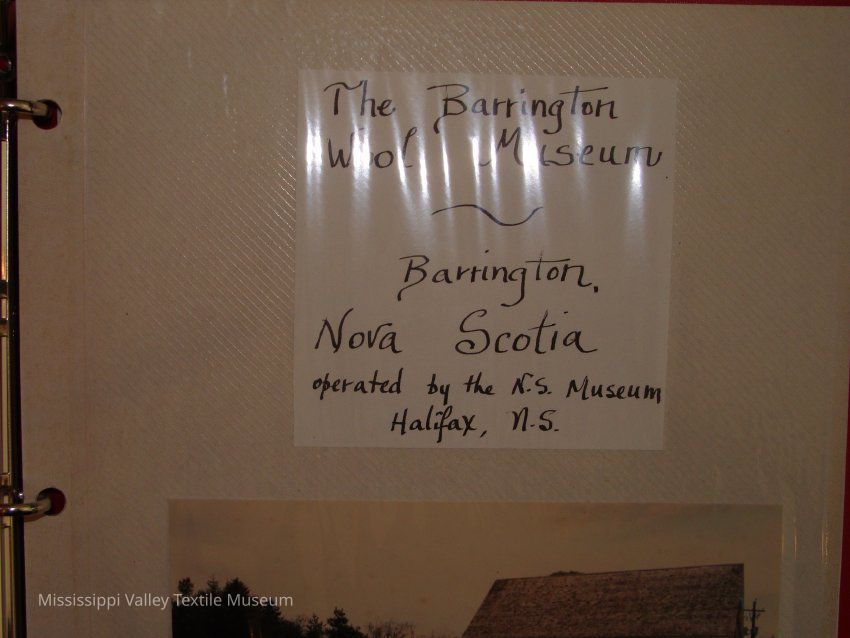 The Barrington
Wool Museum
Barrington,
Nova Scotia
operated by the N.S. Museum
Halifax, N.S.
Mississippi Valley Textile Museum